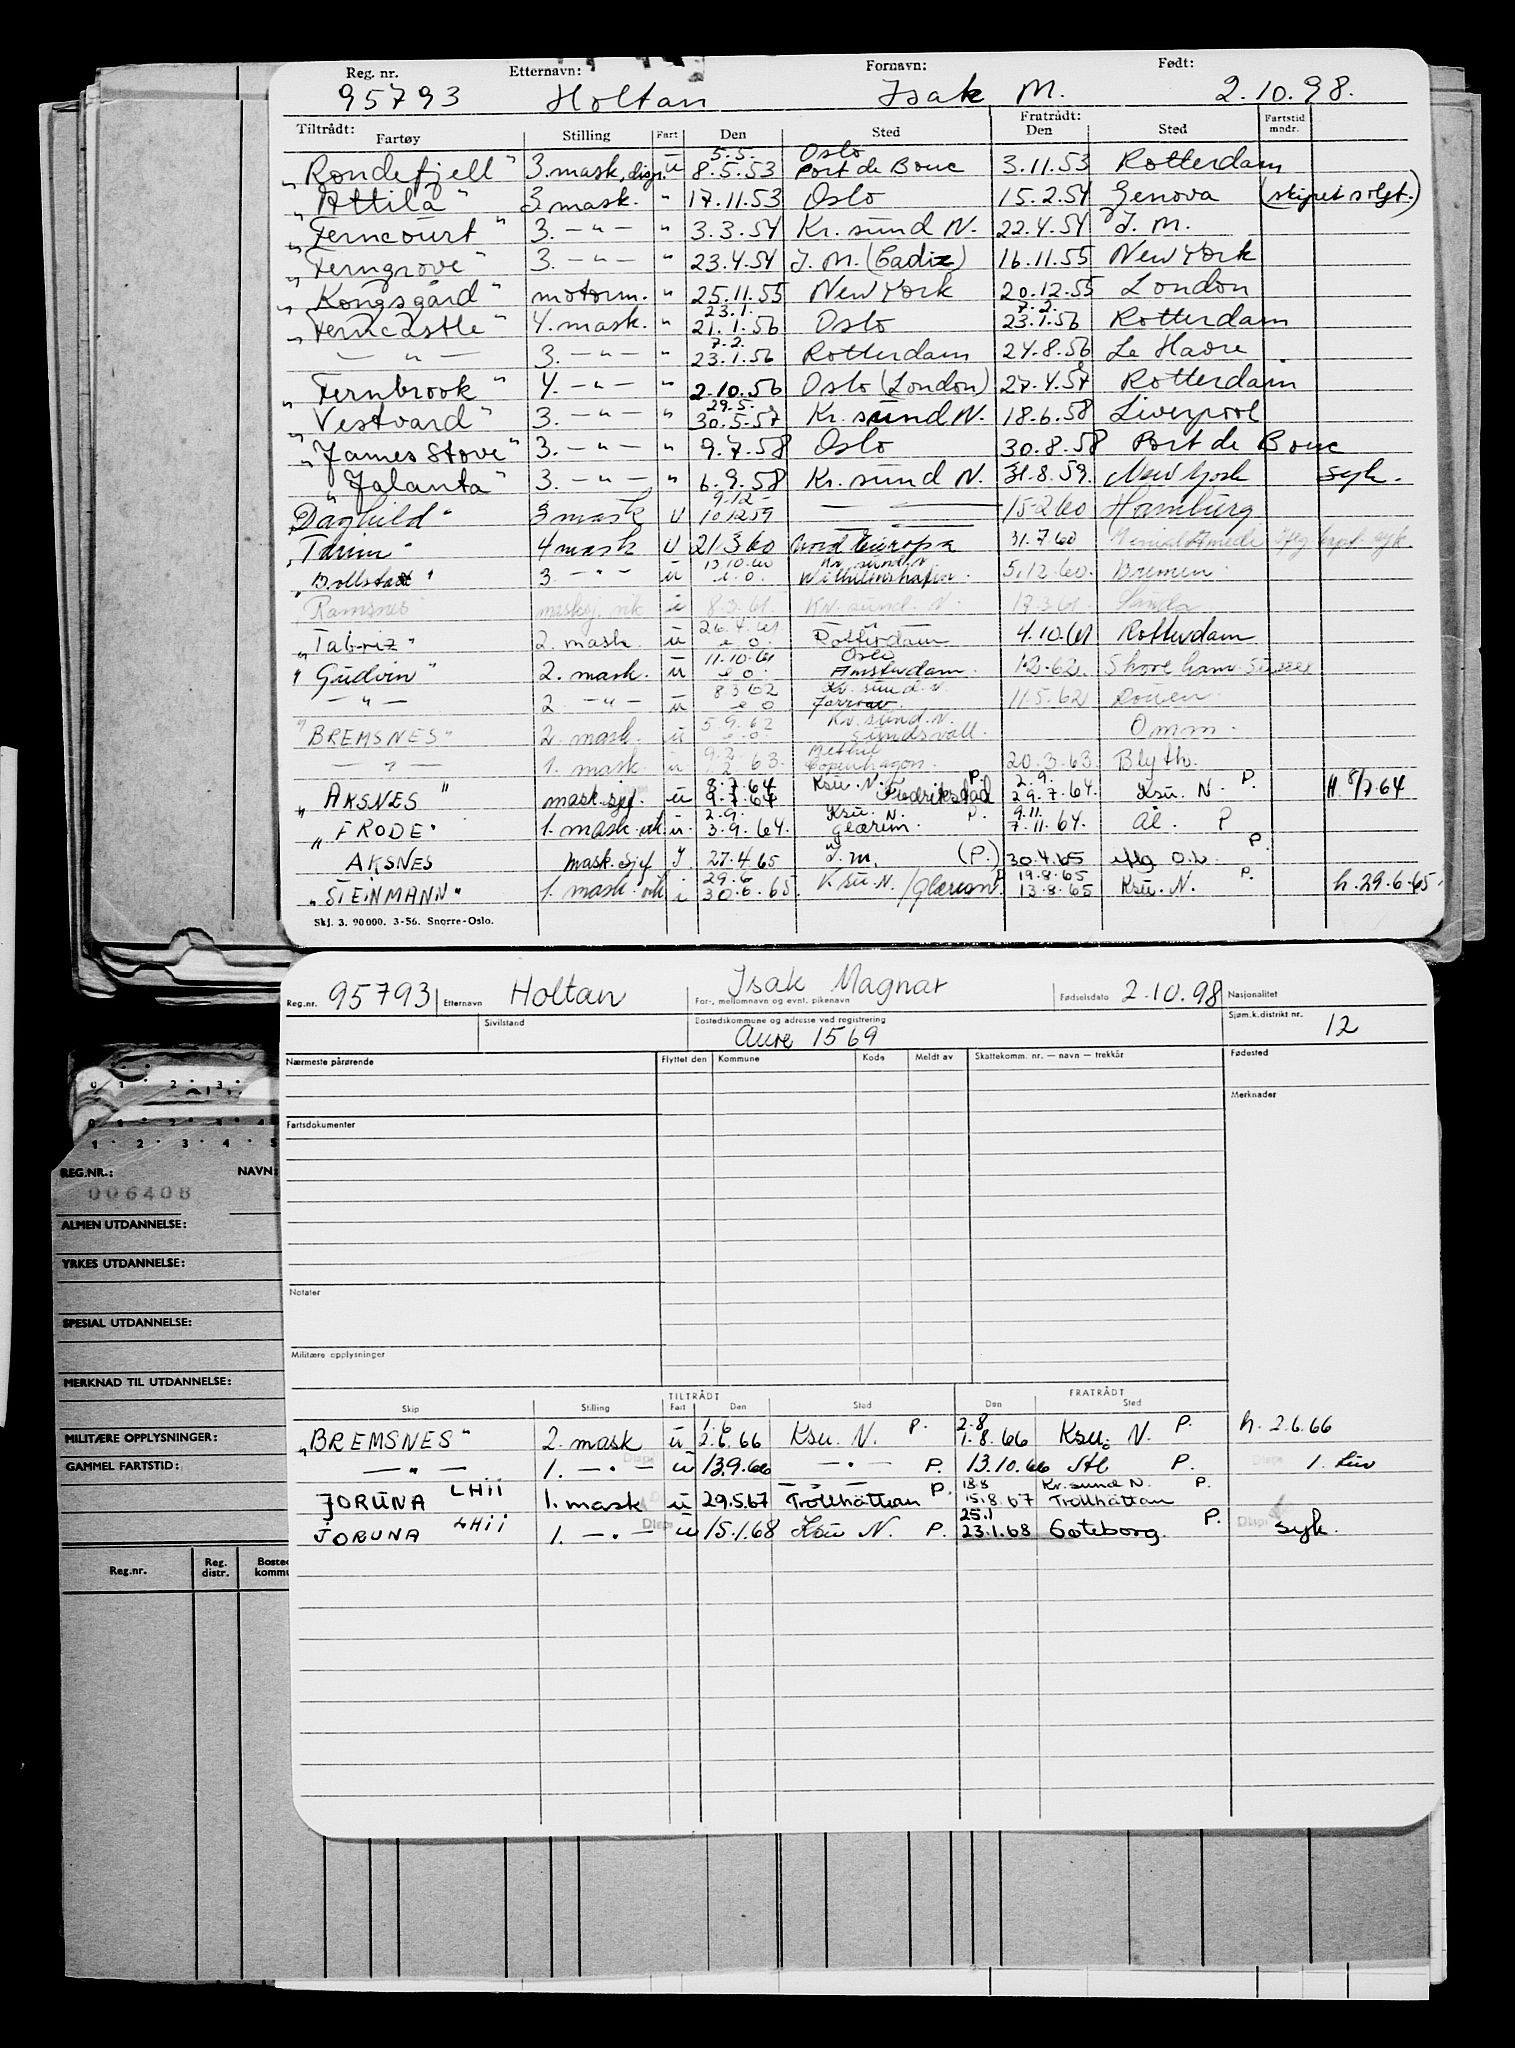 Reg. nr. Etternavn: Fornavn: Født:
95793 Holtan Isak M. 2.10.98.
Tiltrådt: Fratrådt:
Fartøy Stilling Fart Den Sted Den Sted Fartstid mndr.
5.5. Oslo
"Rondefjell" 3. mask, disp. u 8.5.53 Port de Bouc 3.11.53 Rotterdam
"Attila" 3 mask. " 17.11.53 Oslo 15.2.54 Genova (skipet solgt.)
"Ferncourt" 3. — " — " 3.3.54 Kr. sund N. 22.4.54 J. M.
"Ferngrove" 3. — " — " 23.4.54 J. M. (Cadiz) 16.11.55 New York
"Kongsgård" motorm. " 25.11.55 New York 20.12.55 London
23.1. 7.2.
"Ferncastle" 4. mask. " 21.1.56 Oslo 23.1.56 Rotterdam
7.2.
— " — 3. — " — " 23.1.56 Rotterdam 24.8.56 Le Havre
"Fernbrook" 4. — " — " 2.10.56 Oslo (London) 27.4.57 Rotterdam
29.5.
"Vestvard" 3. — " — " 30.5.57 Kr. sund N. 18.6.58 Liverpool
"James Stove" 3. — " — " 9.7.58 Oslo 30.8.58 Port de Bouc
"Jalanta" 3. — " — " 6.9.58 Kr. sund N. 31.8.59. New York syk.
9.12 -
"Daghild" 3 mask U 10.12.59 — 15-2.60 Hamburg
"Tarim" 4 mask U 21.3.60 Nord Europa 31.7.60 syk.
13.10.60 Kr. sund. N.
"Bollsta" 3. — " — u e.o. Wilhelmshafen. 5.12.60. Bremen.
"Ramsnes" masksj. vik u 8.3.61. Kr. sund. N. 17.3.61.
26.4.61
"Tabriz" 2. mask. u e.o. Rotterdam 4.10.61 Rotterdam
11.10.61 Oslo
"Gudvin" 2. mask. u e.o. Amsterdam. 1.2.62. Shoreham
8.3.62 Kr. sund. N.
— " — 2. — " — u e.o. Jarrow. 11.5.62 Rouen.
5.9.62 Kr. sund. N.
"BREMSNES" 2. mask. u e.o. Sundsvall. Omm.
9.2. Methil
— " — 1. mask. u 63. Copenhagen. 20.3.63. Blyth.
8.7.64 Ksu. N. P. 2.9.
"AKSNES" mask.sjef. u 9.7.64 Fredrikstad 29.7.64. Ksu. N. P. H. 8/7.64
2.9. Ksu. N. P. 9.11.
"FRODE" 1. mask. vik u. 3.9.64. Glærem. 7.11.64. Ål. P
AKSNES mask.sjef J 27.4.65 J.m. (P.) 30.4.65 iflg o.b. P.
29.6 19.8.65
"STEINMANN" 1. mask. vik i 30.6.65. Ksu. N. /Glærem P 13.8.65 Ksu. N. P. h. 29.6.65.
Skj. 3. 90 000. 3-56. Snorre-Oslo.
Reg.nr. 95793 Etternavn Holtan Isak Magnar For-, mellomnavn og evnt. pikenavn Fødselsdato 2.10.98 Nasjonalitet
Sivilstand Bostedskommune og adresse ved registrering Sjøm.k.distrikt nr. 12
Aure 1569
Nærmeste pårørende Flyttet den Kommune Kode Meldt av Skattekomm. nr. — navn — trekkår Fødested
Merknader
Fartsdokumenter
Notater
Militære opplysninger
TILTRÅDT FRATRÅDT
Skip Stilling Fart Den Sted Den Sted
1.6 2.8
"BREMSNES" 2. mask u 2.6.66 Ksu. N. P. 1.8.66 Ksu. N. P. h. 2.6.66
— " — 1. — " — u 13.9.66 — " — P. 13.10.66 P. 1.
13.8 Kr. sund N. P.
JORUNA LHII 1. mask u 29.5.67 Trollhättan P. 15.8.67 Trollhättan
25.1
JORUNA LHII 1. — " — u 15.1.68 Ksu N. P. 23.1.68 Göteborg. P. syk.
REG.NR.: NAVN:
006408
ALMEN UTDANNELSE:
YRKES UTDANNELSE:
SPESIAL UTDANNELSE:
MERKNAD TIL UTDANNELSE:
MILITÆRE OPPLYSNINGER:
GAMMEL FARTSTID:
Reg.nr. Reg. distr.